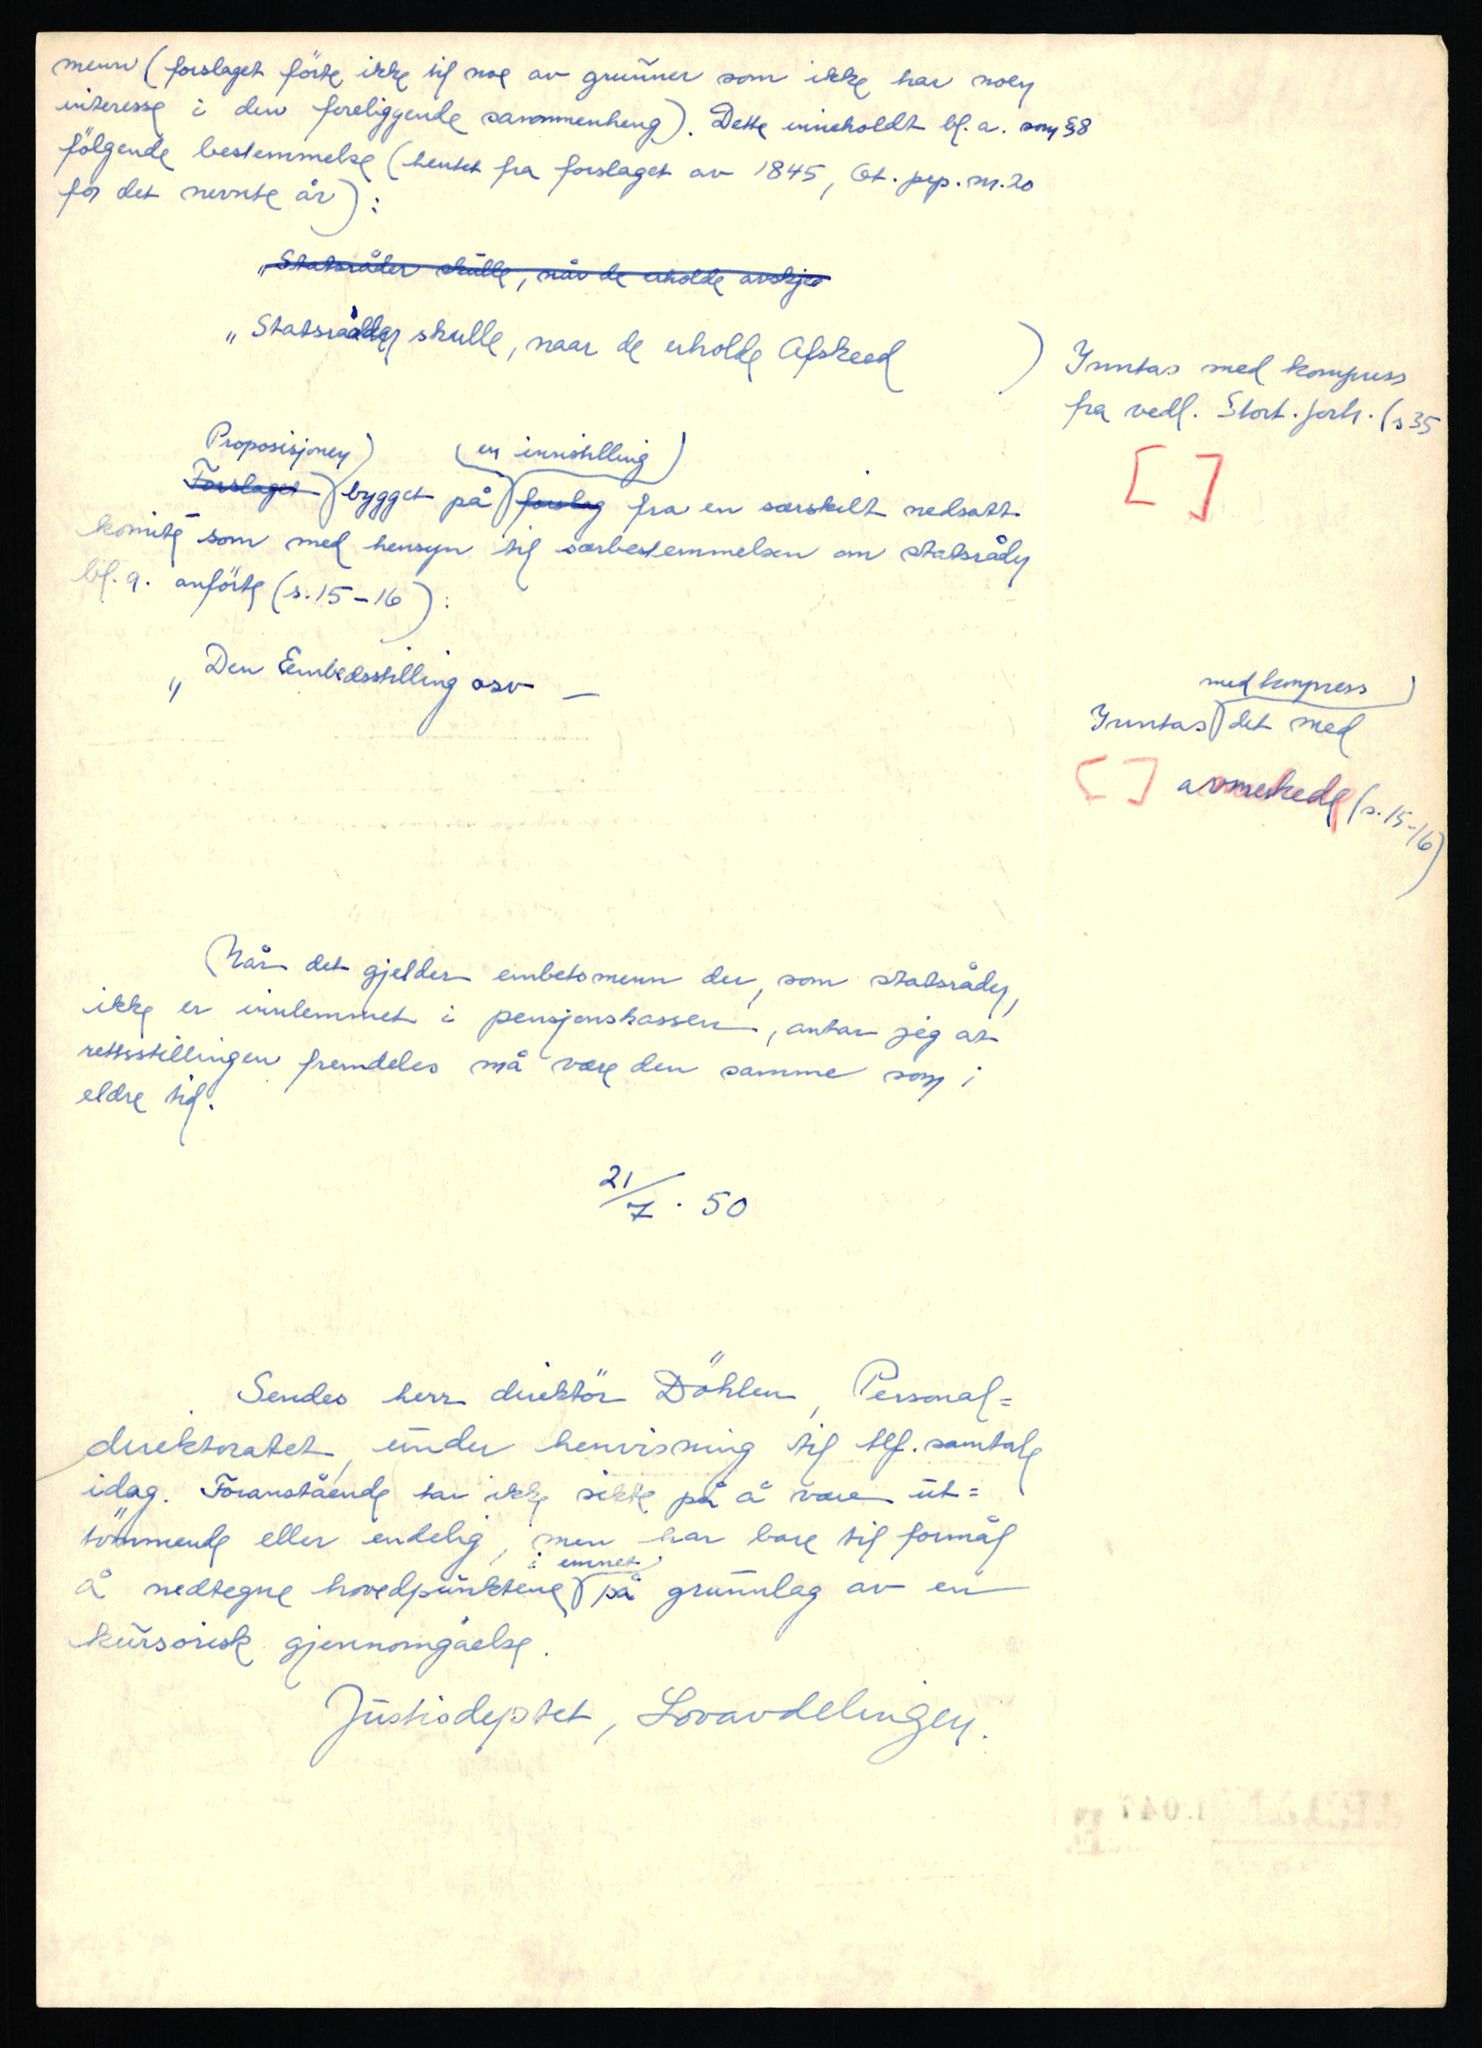 menn (forslaget förte ikke til noe av grunner som ikke har noen
interesse i den foreliggende sammenheng). Dette inneholdt bl. a. som § 8
fölgende bestemmelse (hentet fra forslaget av 1845, Ot. prp. nr. 20
for det nevnte år):
"Statsråder skulle, når de erholde avskje
"Statsraader skulle, naar de erholde Afskeed
) Inntas med kompress
fra vedl. Stort. forh. (s 35
[ ]
Proposisjonen en innstilling
Forslaget bygget på forslag fra en særskilt nedsatt
komité som med hensyn til særbestemmelsen om statsråden
bl. a. anförte (s. 15-16):
"Den Embedsstilling osv —
med kompress
Inntas det med
[ ] avmerkede (s. 15-16)
Når det gjelder embetsmenn der, som statsråden,
ikke er innlemmet i pensjonskassen, antar jeg at
rettsstillingen fremdeles må være den samme som i
eldre tid.
21/7. 50
Sendes herr direktör Döhlen, Personal=
direktoratet, under henvisning til tlf. samtale
idag. Foranstående tar ikke sikte på å være ut=
tömmende eller endelig, men har bare til formål
i emnet
å nedtegne hovedpunktene på grunnlag av en
kursorisk gjennomgåelse.
Justisdeptet, Lovavdelingen.